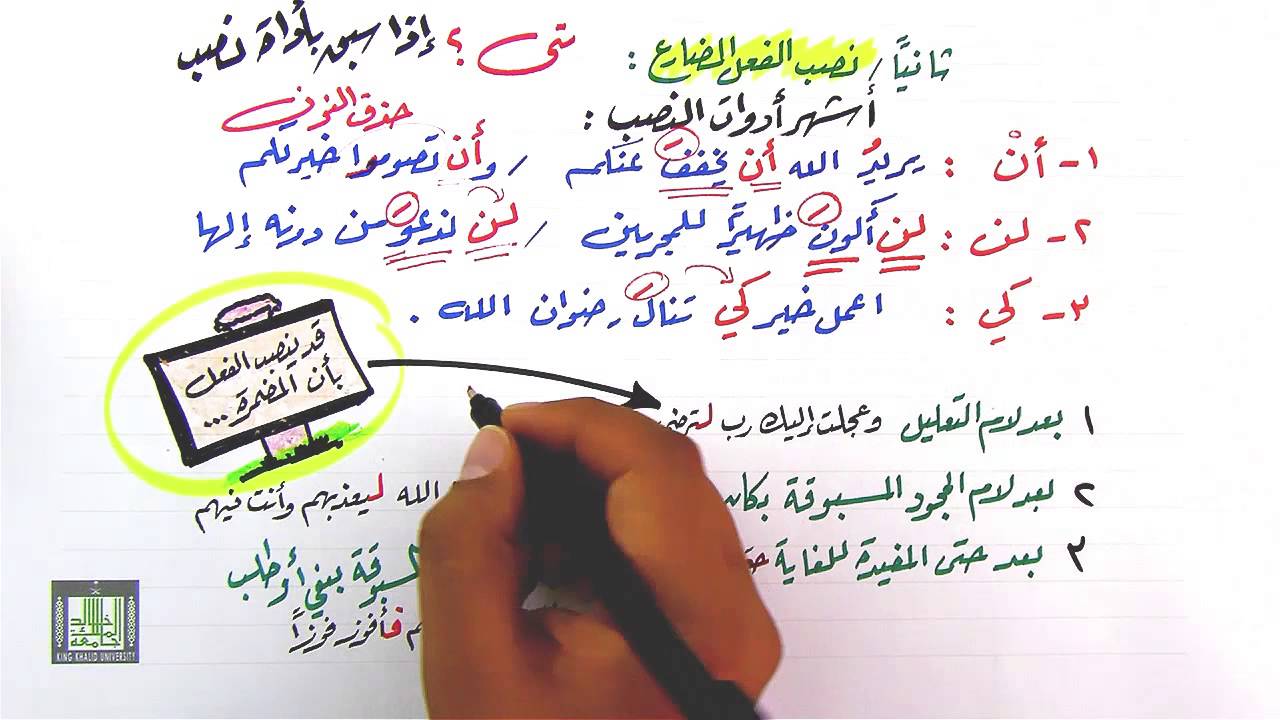 ثانيًا / نصب الفعل المضارع : متى ؟ إذا سبق بأداة نصب
أشهر أدوات النصب :
حذف النون
١- أنْ : يريدُ الله أن يخفف عنكم / وأن تصوموا خير لكم
٢- لن : لن أكون ظهيرًا للمجرمين / لن ندعو من دونه إلها
٣- كي : اعمل خير كي تنال رضوان الله .
قد ينصب الفعل
بأن المضمرة ...
١ بعد لام التعليل وعجلت إليك رب
٢ بعد لام الجحود المسبوقة بكان الله ليعذبهم وأنت فيهم
٣ بعد حتى المفيدة للغاية
المسبوقة بنفي أو طلب
فأفوز فوزًا
KING KHALID UNIVERSITY